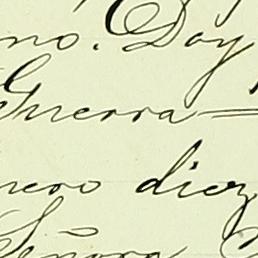 no. Doy
Guerra
nero diez
Señora